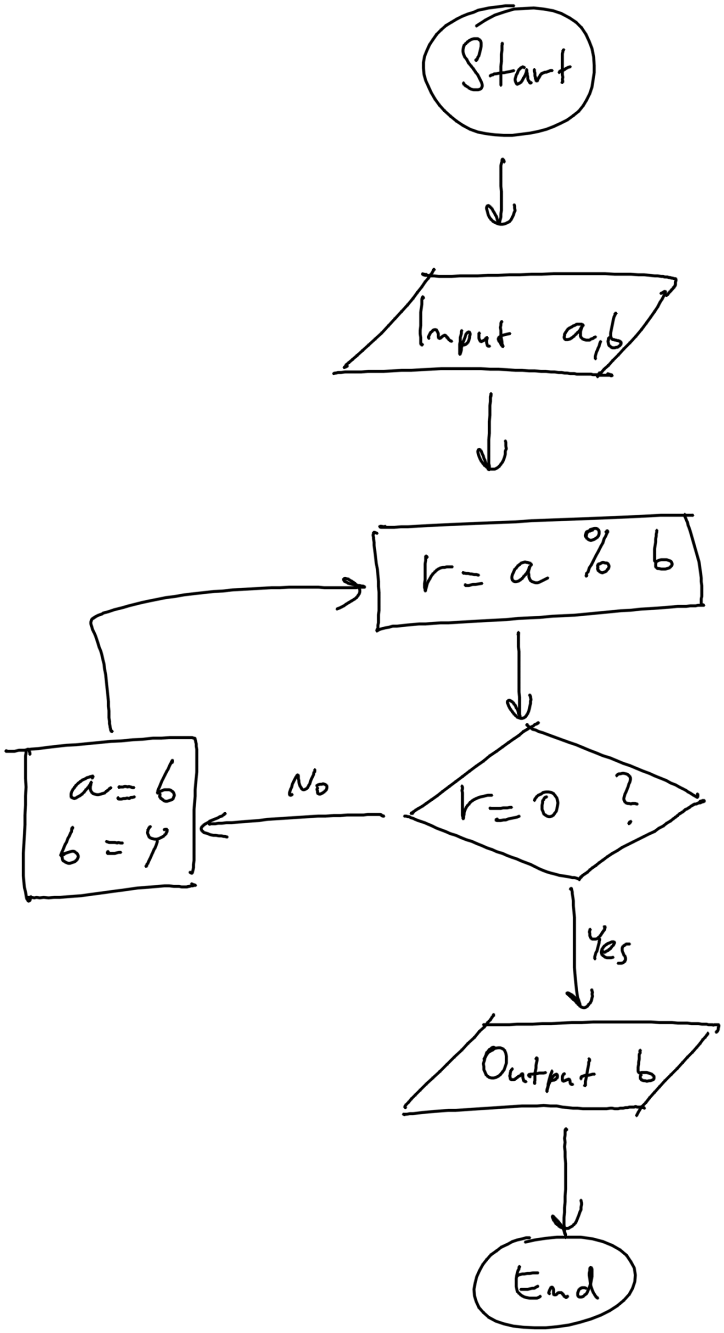 Start
Input a,b
r = a % b
r = 0 ?
No
a = b
b = y
Yes
Output b
End